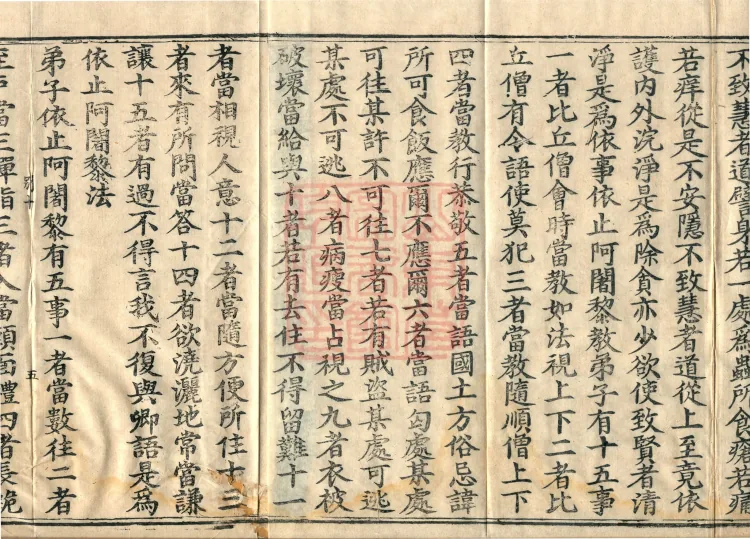 不致慧者道譬身若一處爲蟲所食瘡若痛
若痒從是不安隱不致慧者道從上至竟依
護內外浣淨是爲除貪亦少欲使致賢者清
淨是爲依事依止阿闍黎教弟子有十五事
一者比丘僧會時當教如法視上下二者比
丘僧有令語使莫犯三者當教隨順僧上下
四者當教行恭敬五者當語國土方俗忌諱
所可食飯應爾不應爾六者當語匃處某處
可往某許不可往七者若有賊盜某處可逃
某處不可逃八者病瘦當占視之九者衣被
破壞當給與十者若有去住不得留難十一
者當相視人意十二者當隨方便所住十三
者來有所問當答十四者欲澆灑地常當謙
讓十五者有過不得言我不復與卿語是爲
依止阿闍黎法
弟子依止阿闍黎有五事一者當數往二者
五
至戶當三彈指三者入當頭面禮四者長跪